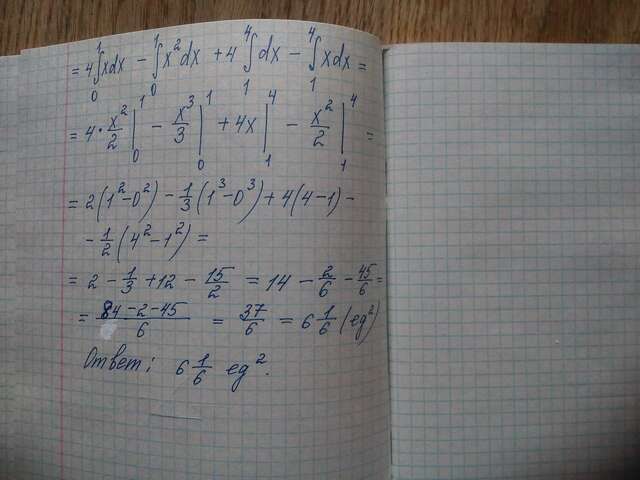 = 4∫₀¹xdx − ∫₀¹x²dx + 4∫₁⁴dx − ∫₁⁴xdx =
= 4·x²/2|₀¹ − x³/3|₀¹ + 4x|₁⁴ − x²/2|₁⁴ =
= 2(1²−0²) − 1/3(1³−0³) + 4(4−1) −
− 1/2(4²−1²) =
= 2 − 1/3 + 12 − 15/2 = 14 − 2/6 − 45/6 =
= (84−2−45)/6 = 37/6 = 6 1/6 (ед²)
Ответ: 6 1/6 ед².